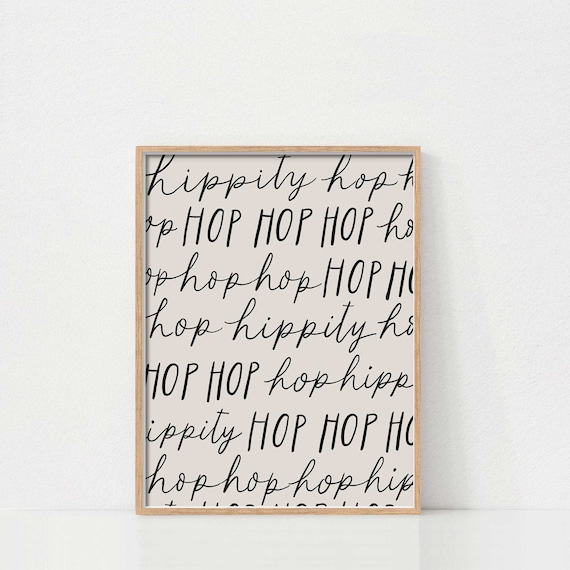 hippity hop h
op HOP HOP HOP ho
ophophop HOP HO
hop hippity ho
HOP HOP hop hipp
ippity HOP HOP HO
hophophophip
HOP HOP HOP